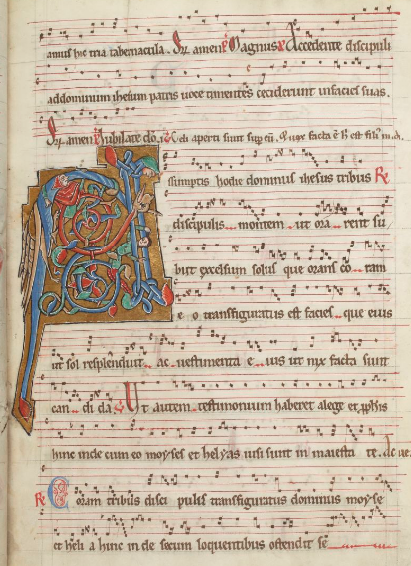 amus hic tria tabernacula. amen Magnus Accedente discipuli
addominum ihesum patris uoce timentes ceciderunt infacies suas.
amen Iubilate do. celi aperti sunt sup facta ē
ssumptis hodie dominus ihesus tribus
discipulis montem ut ora rent su
biit excelsum solus que orans co ram
e o transfiguratus est facies que eius
ut sol resplenduit ac uestimenta e ius ut nix facta sunt
can di da Ut autem testimonium haberet a lege et pphis
hinc inde cum eo moyses et helyas uisi sunt in maiesta te.
Coram tribus disci pulis transfiguratus dominus moyse
et heli a hinc in de secum loquentibus ostendit se